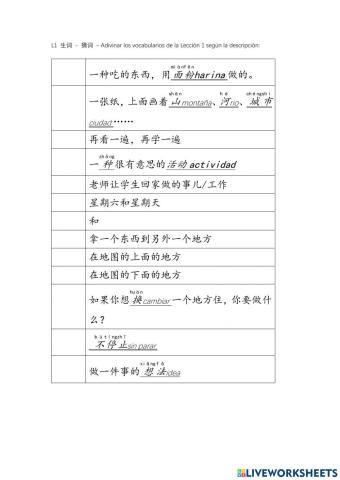 L1 生词 – 猜词 – Adivinar los vocabularios de la Lección 1 según la descripción:
miànfěn
一种吃的东西，用面粉harina做的。
shān hé chéngshì
一张纸，上面画着山montaña、河río、城市
ciudad……
再看一遍，再学一遍
zhǒng
一种很有意思的活动 actividad
老师让学生回家做的事儿/工作
星期六和星期天
和
拿一个东西到另外一个地方
在地图的上面的地方
在地图的下面的地方
huàn
如果你想换cambiar一个地方住，你要做什
么？
bùtíngzhǐ
不停止sin parar,
xiǎngfǎ
做一件事的想法idea
LIVEWORKSHEETS